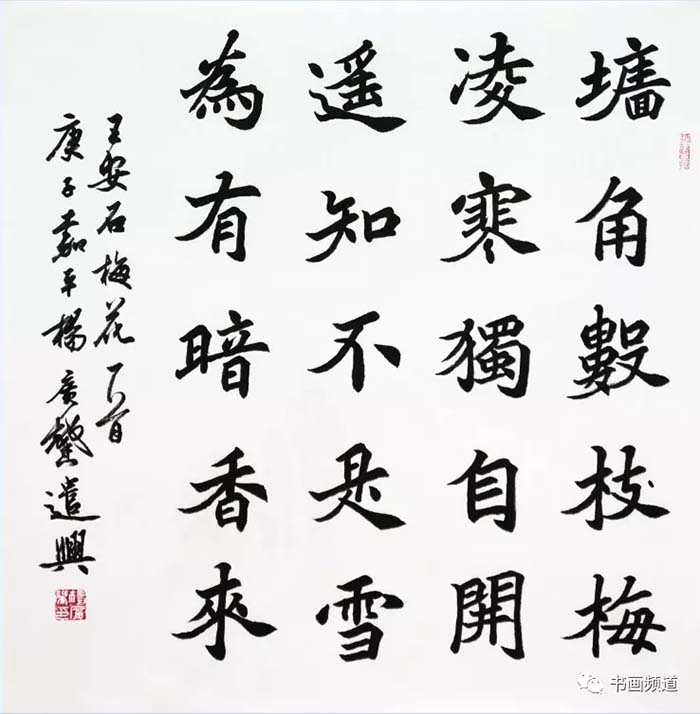 墻角數枝梅
凌寒獨自開
遥知不是雪
為有暗香來
王安石梅花一首
庚子嘉平楊廣馨遣興
书画频道